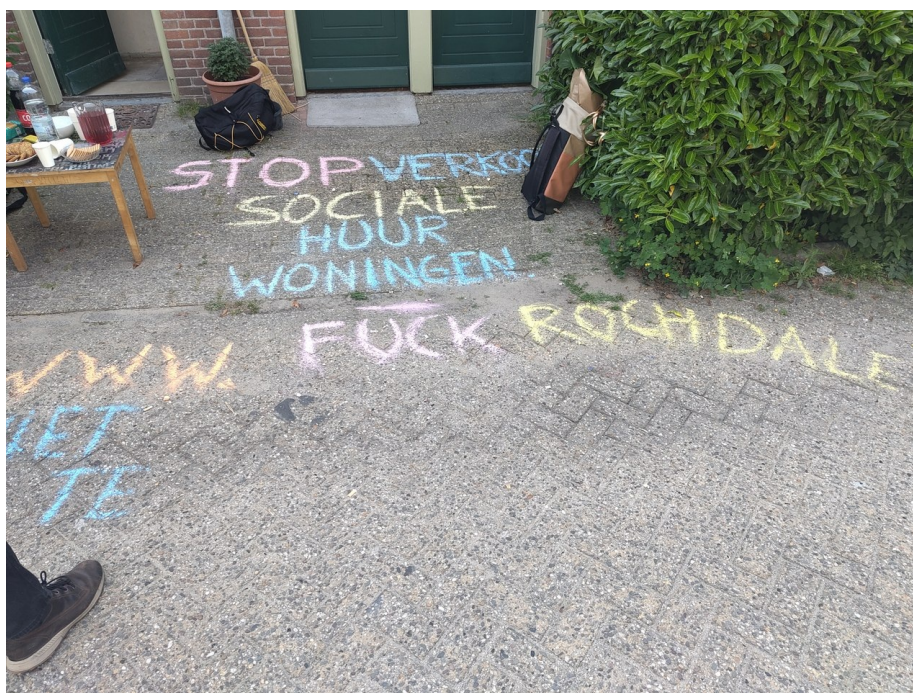 STOP VERKOO
SOCIALE
HUUR
WONINGEN.
FUCK ROCHDALE
WWW.
NIET
TE